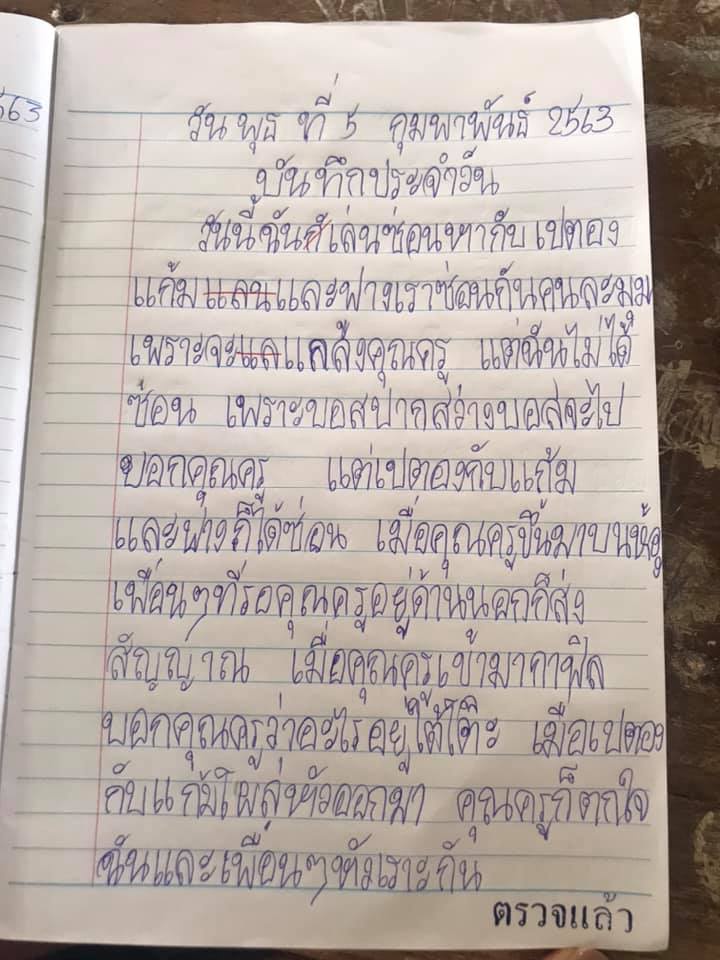 563
วัน พุธ ที่ 5 กุมพาพันธ์ 2563
บันทึกประจำวัน
วันนี้ฉันก็เล่นซ่อนหากับเปตอง
แก้มแลนและฟางเราซ่อนกันคนละมุม
เพราะจะแลแกล้งคุณครู แต่ฉันไม่ได้
ซ่อน เพราะบอสปากสว่างบอสจะไป
บอกคุณครู แต่เปตองกับแก้ม
และฟางก็ได้ซ่อน เมื่อคุณครูขึ้นมาบนห้อ
เพื่อนๆที่รอคุณครูอยู่ด้านนอกก็ส่ง
สัญญาณ เมื่อคุณครูเข้ามากาฟิล
บอกคุณครูว่าอะไรอยู่ใต้โต๊ะ เมื่อเปตอง
กับแก้มโผล่หัวออกมา คุณครูก็ตกใจ
ฉันและเพื่อนๆหัวเราะกัน
ตรวจแล้ว